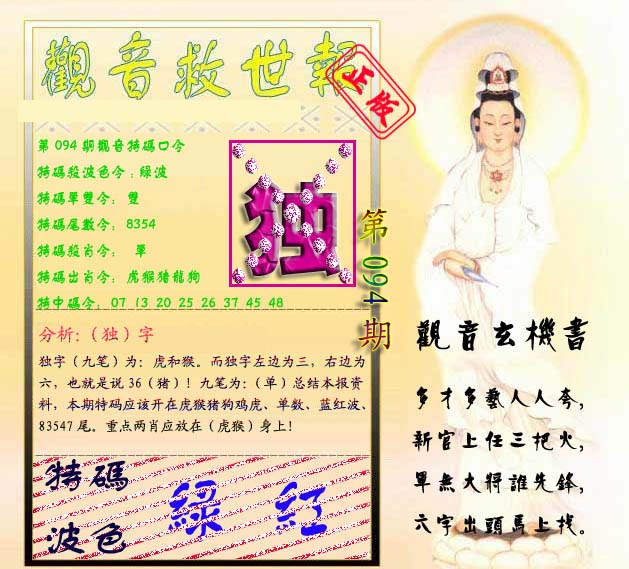 觀音救世報
正版
第 094 期觀音特碼口令
特碼殺波色令：綠波
特碼單雙令： 雙
特碼尾數令： 8354
特碼殺肖令： 單
特碼出肖令： 虎猴猪龍狗
特中碼令： 07 13 20 25 26 37 45 48
独
第 094 期
分析：（独）字
独字（九笔）为：虎和猴。而独字左边为三，右边为
六，也就是说 36（猪）！九笔为：（单）总结本报资
料，本期特码应该开在虎猴猪狗鸡虎、单数、蓝红波、
83547 尾。重点两肖应放在（虎猴）身上！
特碼
波色
綠 紅
觀音玄機書
多才多藝人人夸，
新官上任三把火，
單無大將誰先鋒，
六字出頭馬上找。